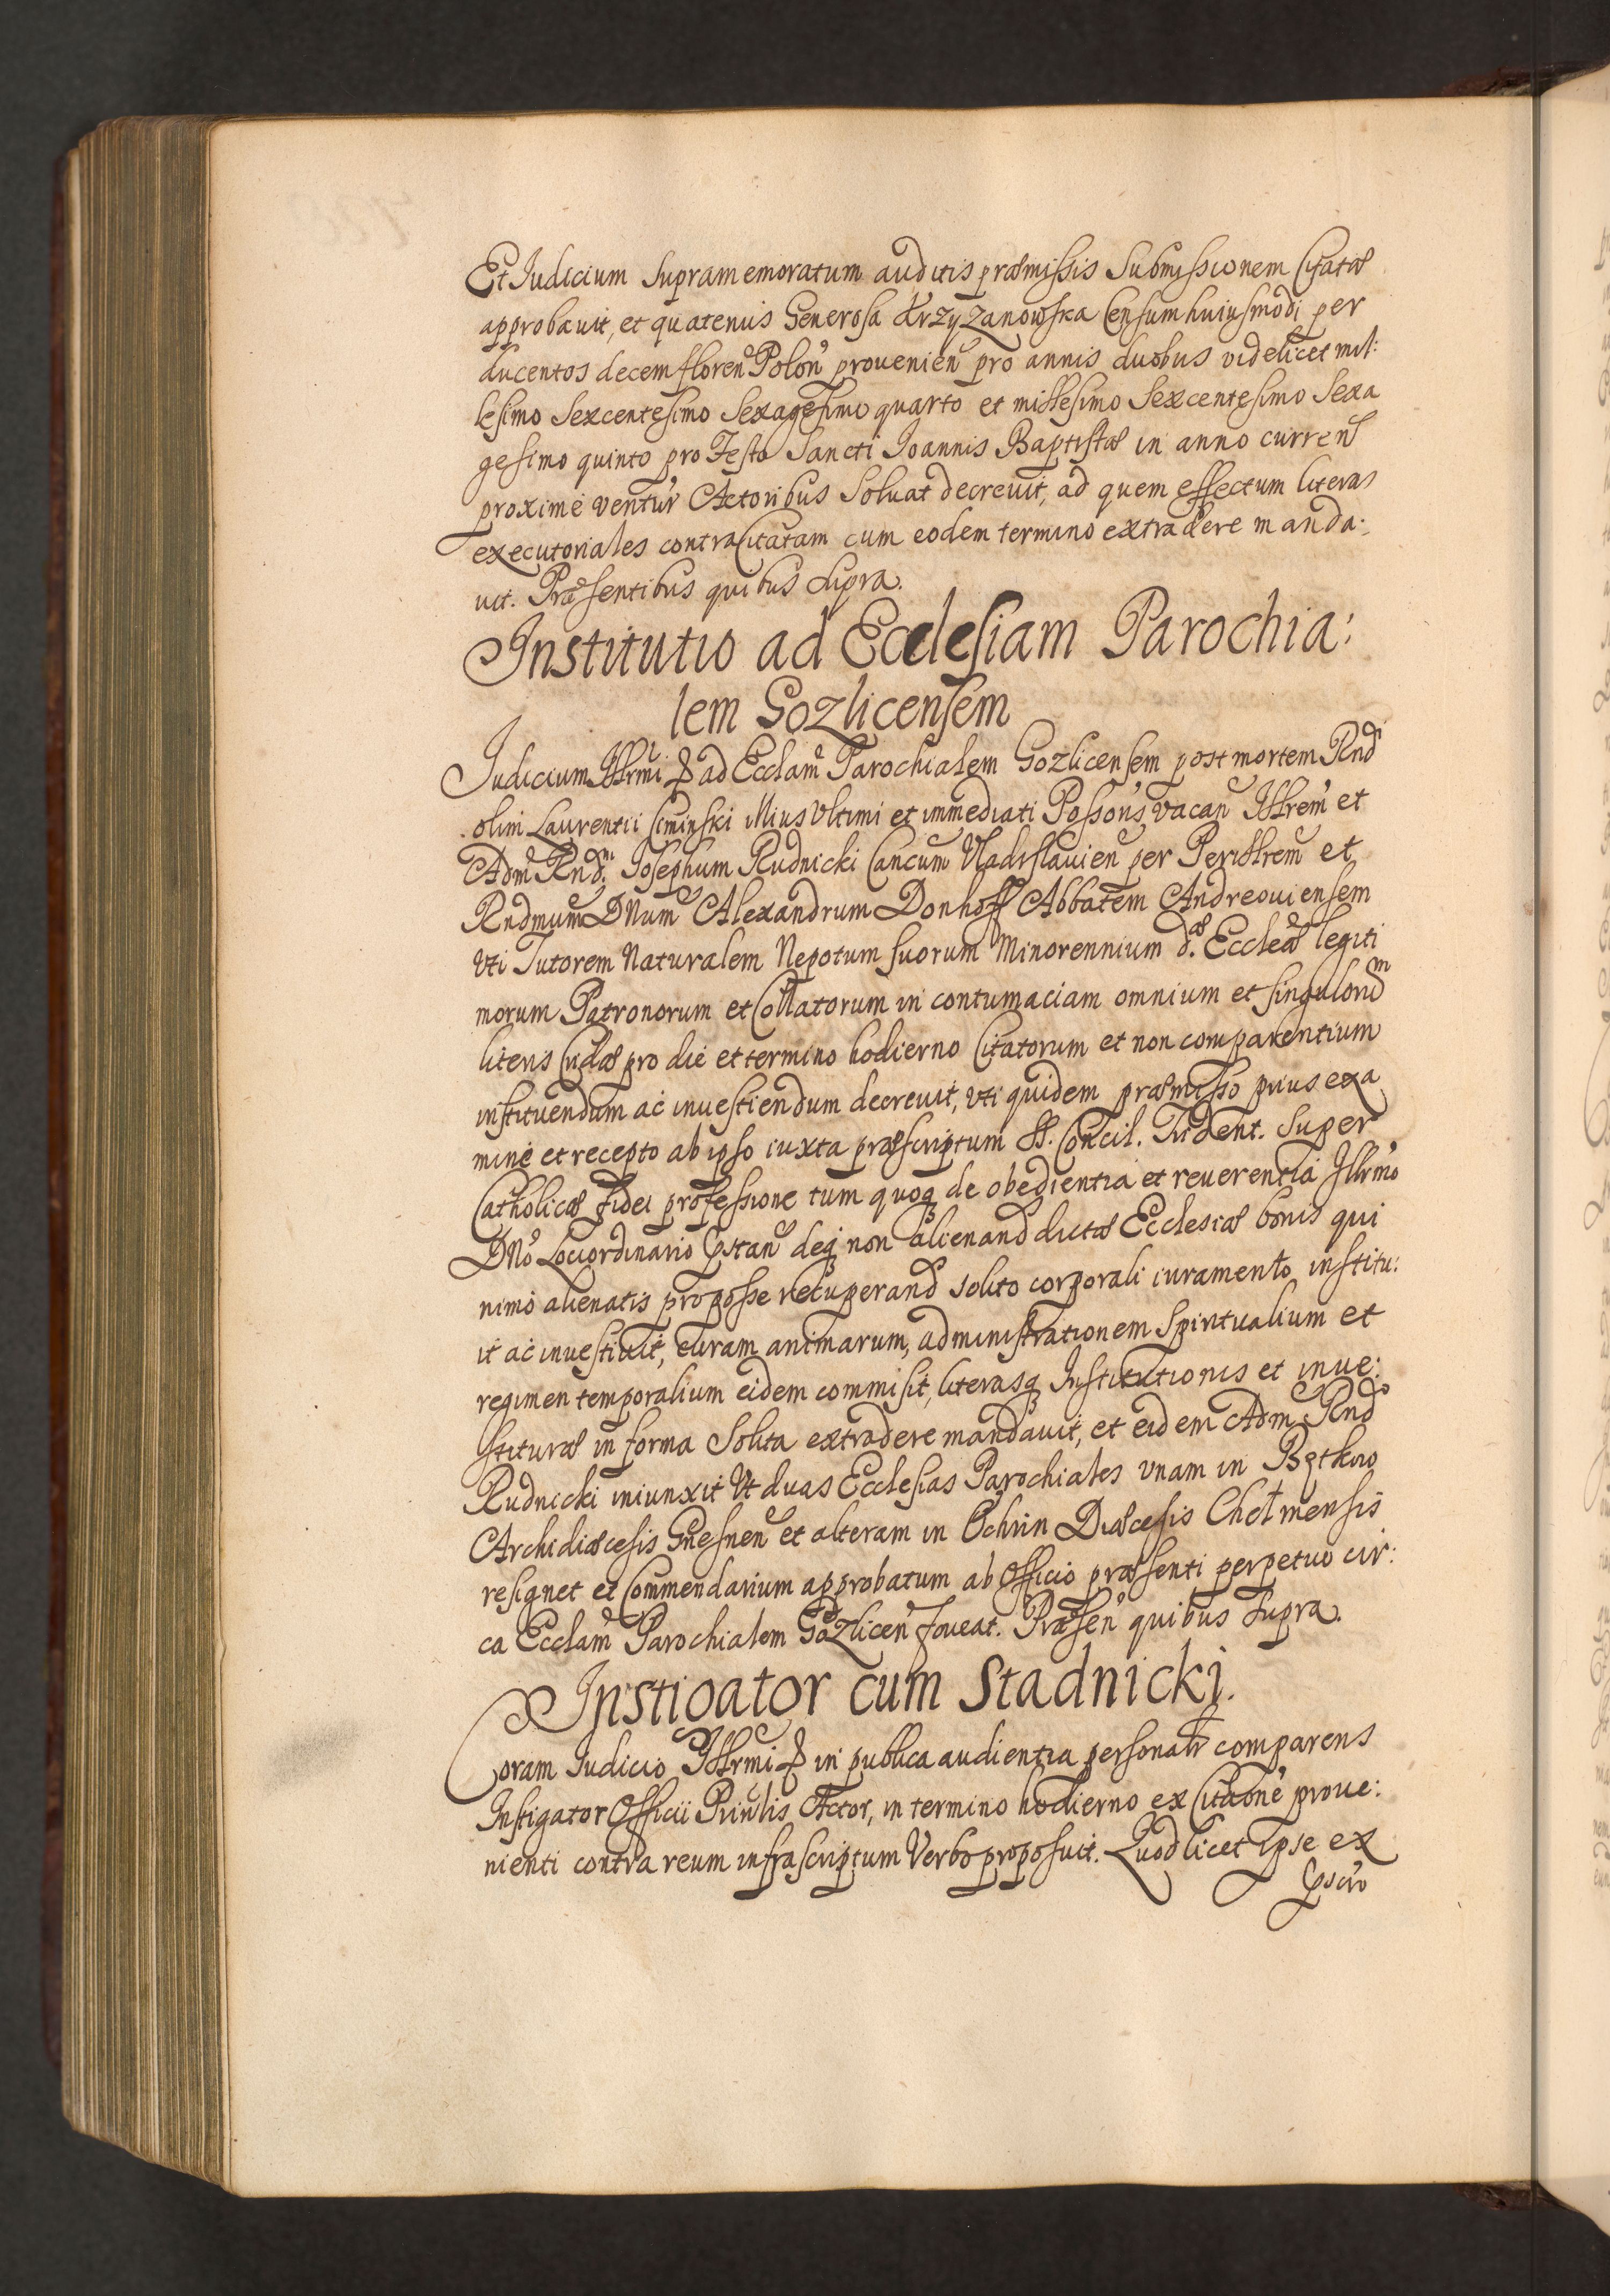 Et Iudicium supramemoratum auditis præmissis submissionem Citatæ
approbauit, et quatenus Generosa Krzyzanowska Censum huiusmodi per
ducentos decem floren̄ Polon̄ prouenien̄ pro annis duobus videlicet mil:
lesimo sexcentesimo sexagesimo quarto et millesimo sexcentesimo sexa
gesimo quinto pro Festo Sancti Ioannis Baptistæ in anno curren̄
proximè ventur̄ Actoribus soluat decreuit, ad quem effectum literas
executoriales contra Citatam cum eodem termino extradere manda:
uit. Præsentibus quibus supra.
Institutio ad Ecclesiam Parochia:
lem Gozlicensem
Iudicium Illr̄mi & ad Ecclam̄ Parochialem Gozlicensem post mortem Rnd̄i
olim Laurentii Siminski illius vltimi et immediati Possor̄is vacan̄ Illrem̄ et
Adm̄ Rnd̄m Iosephum Rudnicki Cancūm Vladislauien̄ per Perillrem̄ et
Rndmum̄ Dnum̄ Alexandrum Donhoff Abbatem Andreouiensem
vti Tutorem Naturalem Nepotum suorum Minorennium d.æ Eccleǣ legiti
morum Patronorum et Collatorum in contumaciam omnium et singulorum
literis Cridæ pro die et termino hodierno Citatorum et non comparentium
instituendum ac inuestiendum decreuit, vti quidem præmisso prius exa
mine et recepto ab ipso iuxta præscriptum SS. Concil. Trident. super
Catholicæ fidei professione tum quoq; de obedientia et reuerentia Illr̄mo
Dnō Lociordinario pstan̄ deq; non alienand̄ dictæ Ecclesiæ bonis qui
nimò alienatis pro posse recuperand̄ solito corporali iuramento institu:
it ac inuestiuit, curam animarum, administrationem Spiritualium et
regimen temporalium eidem commisit, literasq; Institutionis et inue:
stituræ in forma solita extradere mandauit, et eidem Adm̄ Rnd̄o
Rudnicki iniunxit vt duas Ecclesias Parochiales vnam in Bętkow
Archidiæcesis Gnesnen̄ et alteram in Uchrin Diæcesis Chełmensis
resignet et Commendarium approbatum ab Officio præsenti perpetuo cir:
ca Ecclam̄ Parochialem Gozlicen̄ foueat. Præsen̄ quibus supra.
Instigator cum Stadnicki.
Coram Iudicio Illr̄mi & in publica audientia personalr̄ comparens
Instigator Officii Prīnlis Actor, in termino hodierno ex Citaōne proue:
nienti contra reum infrascriptum Verbo proposuit. Quod licet ipse ex
pscr̄o